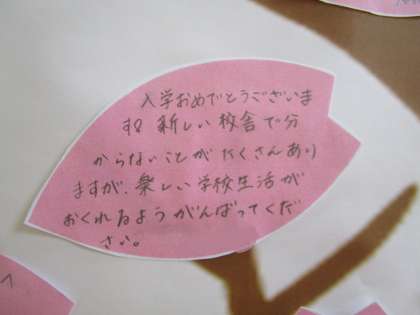 入学おめでとうございま
す。新しい校舎で分
からないことがたくさんあり
ますが、楽しい学校生活が
おくれるようがんばってくだ
さい。